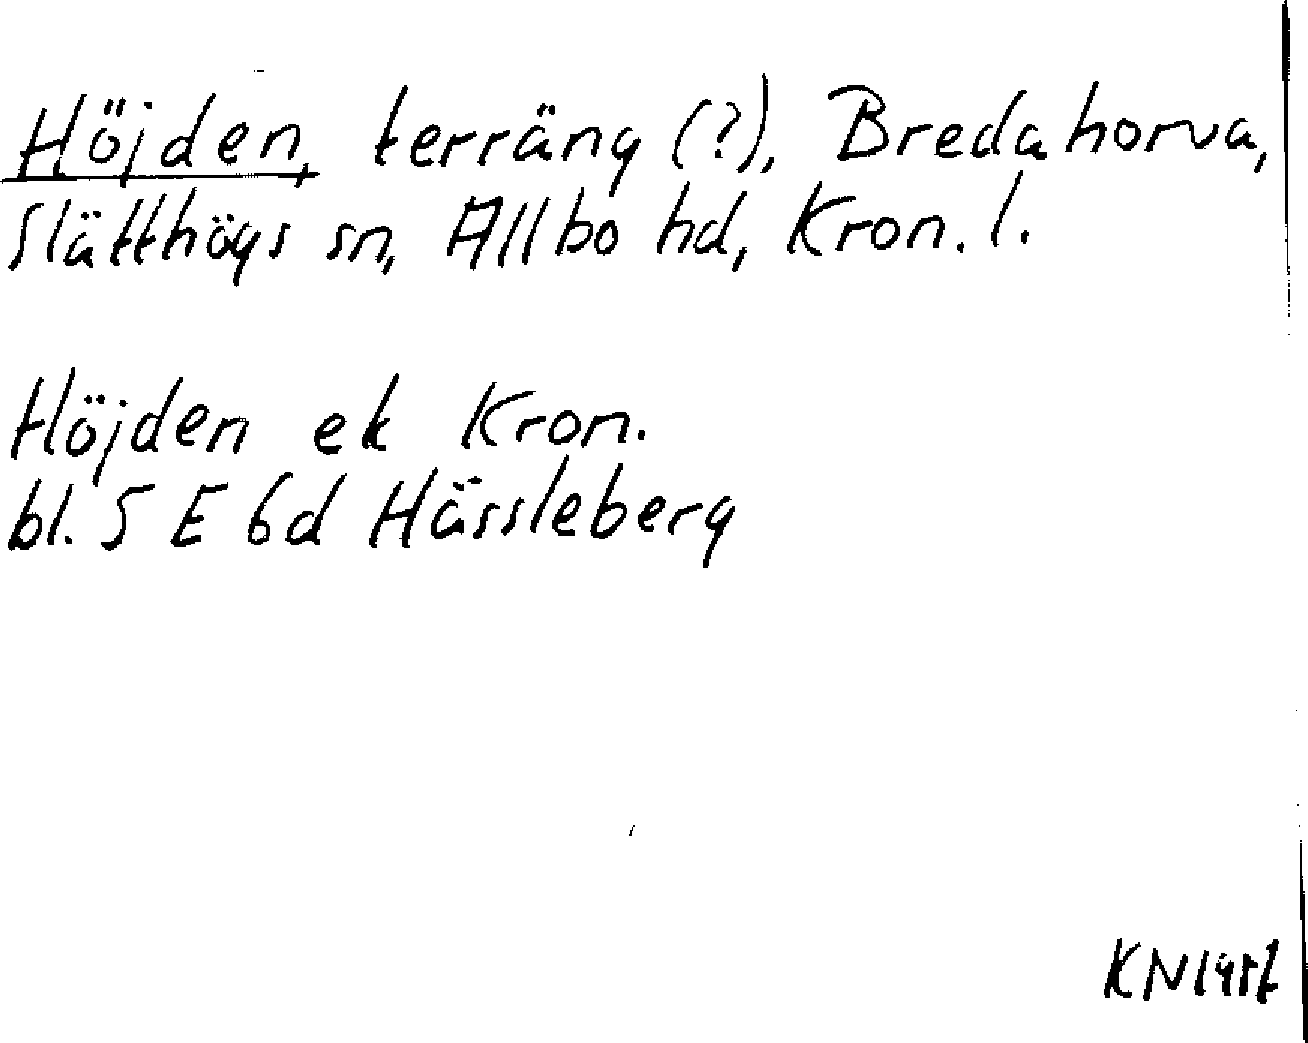 Höjden, terräng (?), Bredahorva,
Slätthögs sn, Allbo hd, Kron. l.
Höjden ek Kron.
bl. 5 E 6d Hässleberg
KN